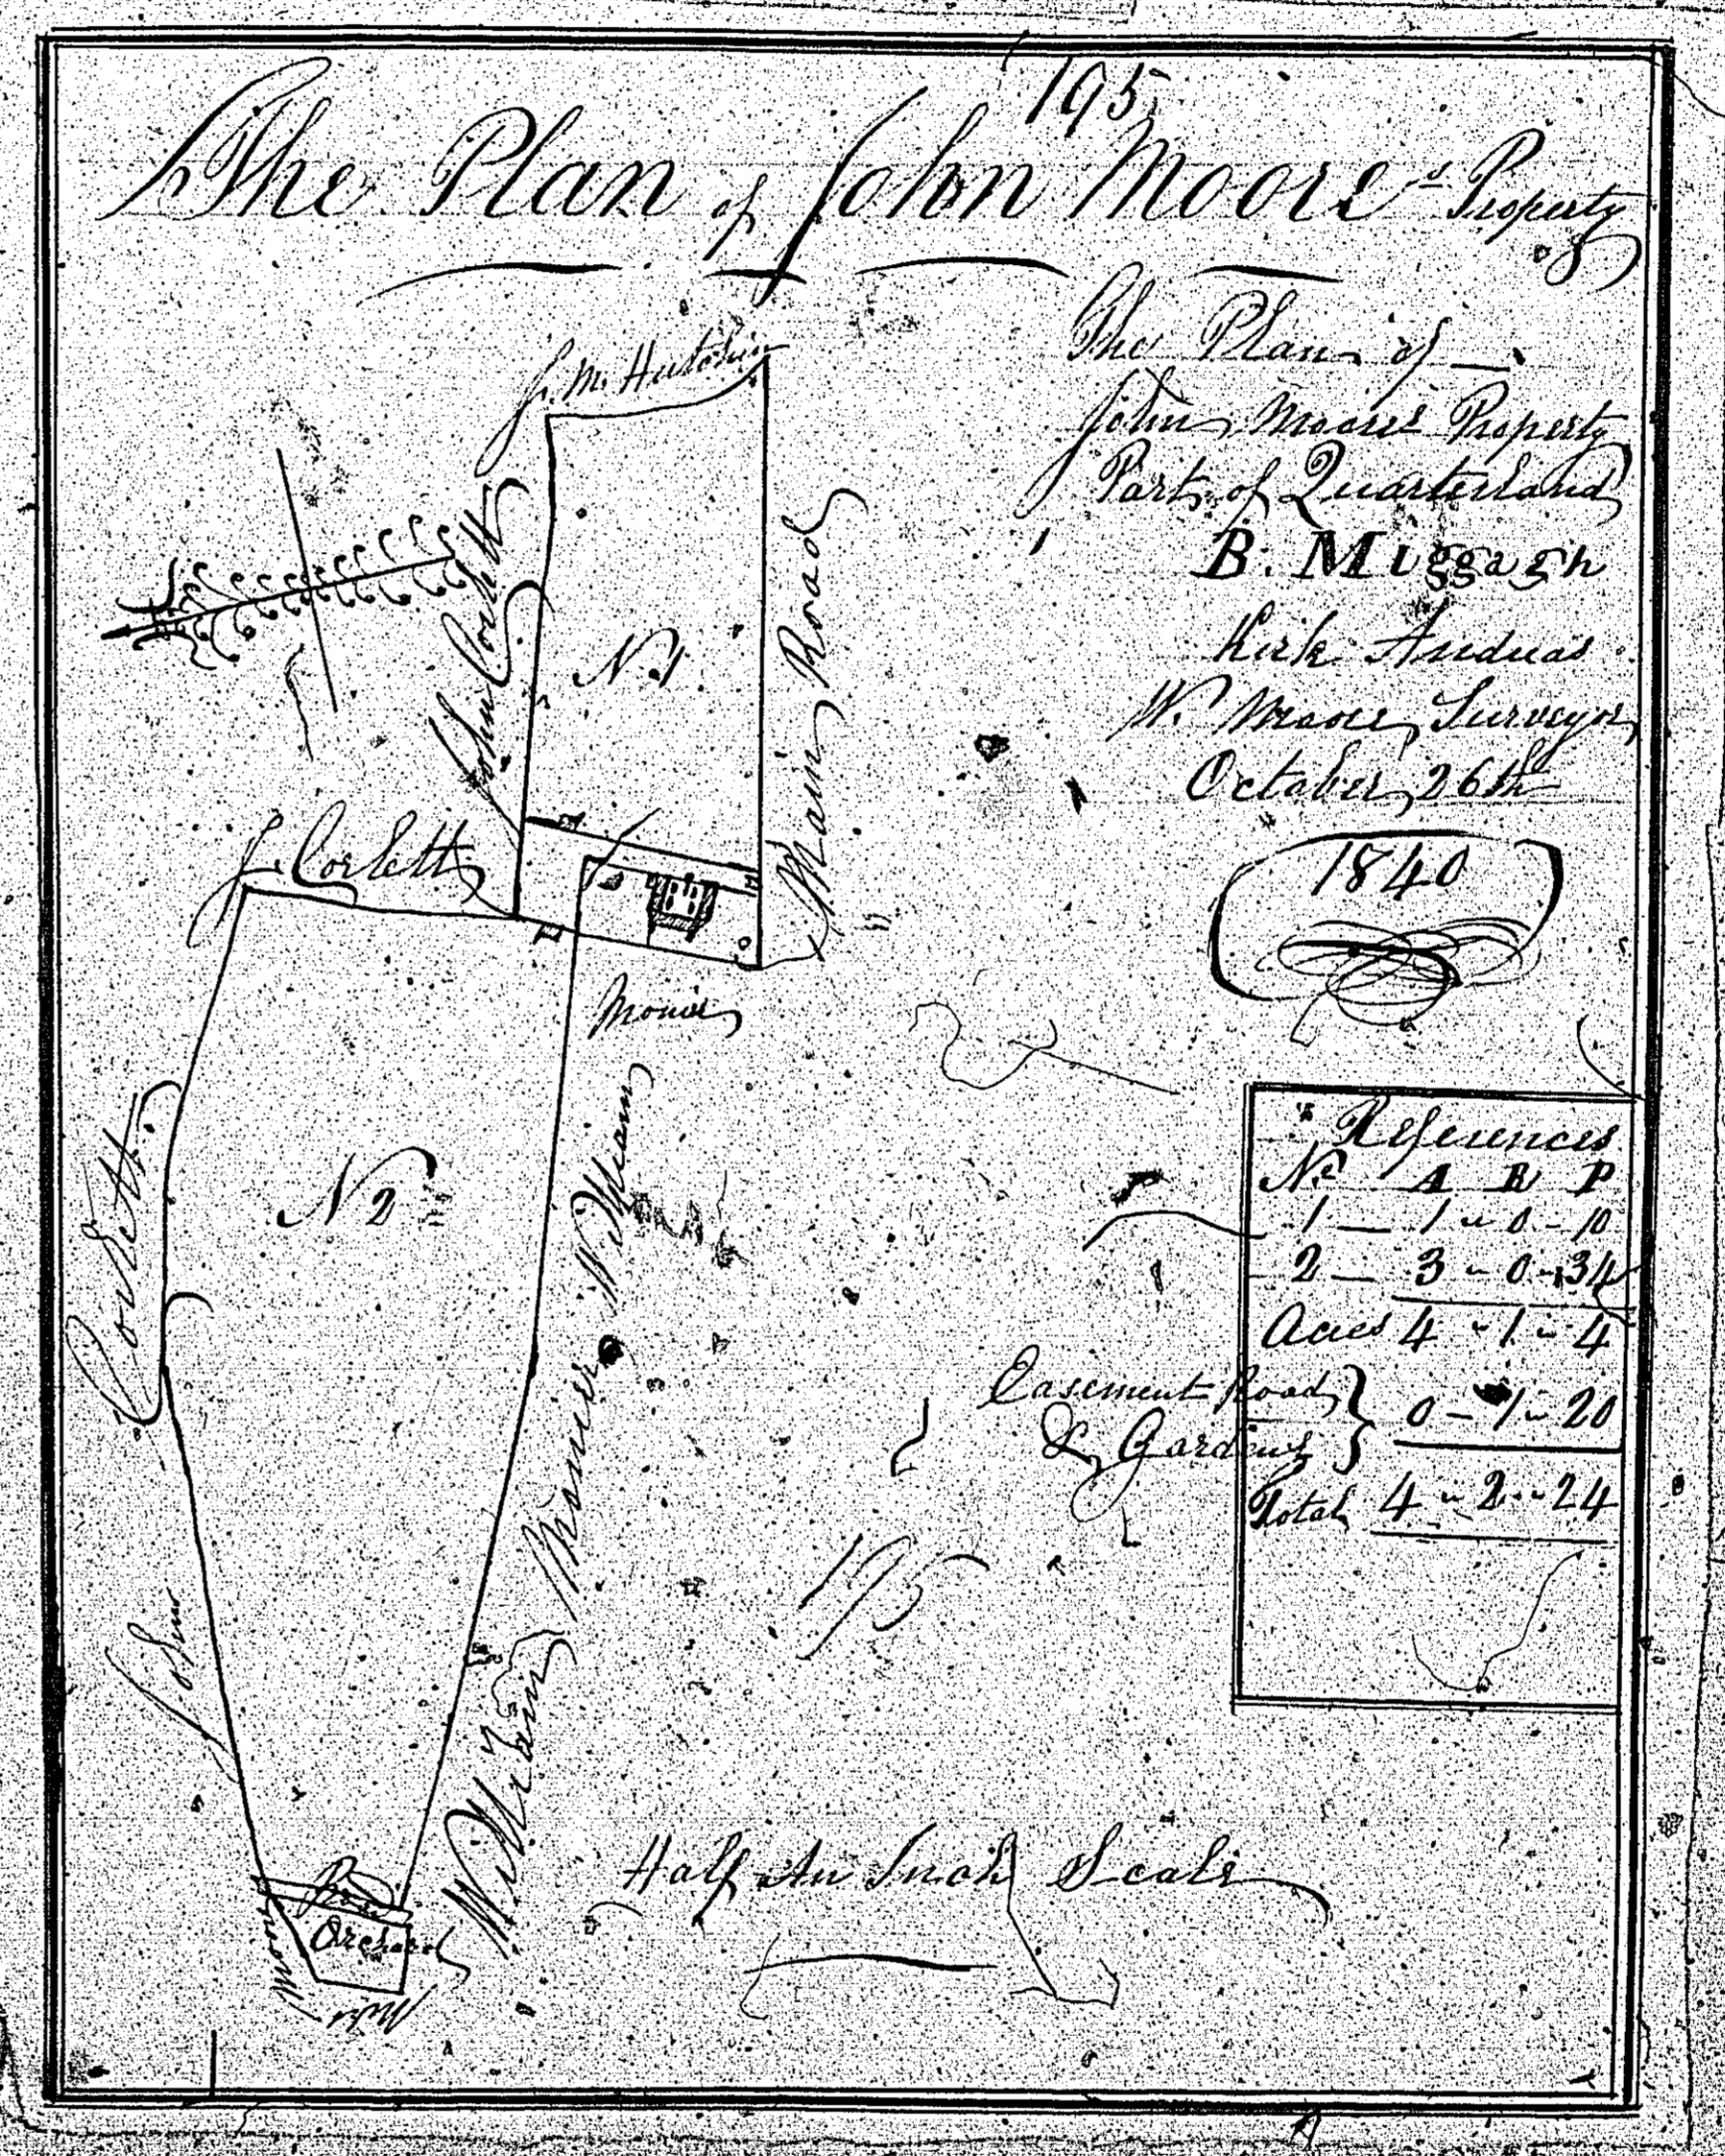 195
The Plan of John Moore's Property
The Plan of
John Moore's Property
Part of Quarterland
B. Miggagh
Kirk Andreas
W. Moore, Surveyor
October 26th
1840
J. Mc Hutchin
John Corlett
No. 1
Main Road
J. Corlett
Monier
John Corlett
No. 2
William Monier W. Mann
References
No. A R P
1 — 1 - 0 - 10
2 — 3 - 0 - 34
Acres 4 - 1 - 4
Easement Road
& Gardens } 0 - 1 - 20
Total 4 - 2 - 24
195
Half An Inch Scale
Orchard